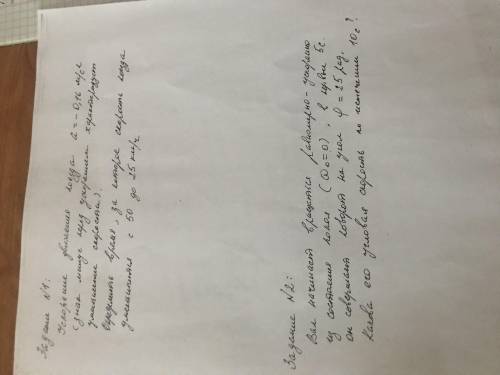 Задание №1:
Ускорение движения поезда a = -0,16 м/с²
(знак минус перед ускорением характеризует
уменьшение скорости).
Определить время, за которое скорость поезда
уменьшится с 50 до 25 км/ч.
Задание №2:
Вал начинает вращаться равномерно-ускоренно
из состояния покоя (ω₀=0), в первые 5с.
он совершает поворот на угол φ = 25 рад.
Какова его угловая скорость по истечении 10с?